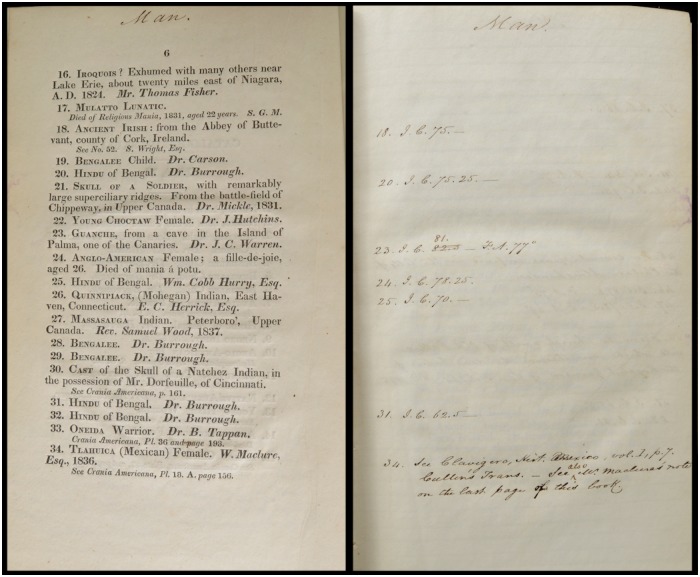 Man.
6
16. Iroquois? Exhumed with many others near
Lake Erie, about twenty miles east of Niagara,
A. D. 1824. Mr. Thomas Fisher.
17. Mulatto Lunatic.
Died of Religious Mania, 1831, aged 22 years. S. G. M.
18. Ancient Irish: from the Abbey of Butte-
vant, county of Cork, Ireland.
See No. 52. S. Wright, Esq.
19. Bengalee Child. Dr. Carson.
20. Hindu of Bengal. Dr. Burrough.
21. Skull of a Soldier, with remarkably
large superciliary ridges. From the battle-field of
Chippeway, in Upper Canada. Dr. Mickle, 1831.
22. Young Choctaw Female. Dr. J. Hutchins.
23. Guanche, from a cave in the Island of
Palma, one of the Canaries. Dr. J. C. Warren.
24. Anglo-American Female; a fille-de-joie,
aged 26. Died of mania á potu.
25. Hindu of Bengal. Wm. Cobb Hurry, Esq.
26. Quinnipiack, (Mohegan) Indian, East Ha-
ven, Connecticut. E. C. Herrick, Esq.
27. Massasauga Indian. Peterboro', Upper
Canada. Rev. Samuel Wood, 1837.
28. Bengalee. Dr. Burrough.
29. Bengalee. Dr. Burrough.
30. Cast of the Skull of a Natchez Indian, in
the possession of Mr. Dorfeuille, of Cincinnati.
See Crania Americana, p. 161.
31. Hindu of Bengal. Dr. Burrough.
32. Hindu of Bengal. Dr. Burrough.
33. Oneida Warrior. Dr. B. Tappan.
Crania Americana, Pl. 36 and page 193.
34. Tlahuica (Mexican) Female. W. Maclure,
Esq., 1836.
See Crania Americana, Pl. 18. A. page 156.
Man.
18. I.C. 75. —
20. I.C. 75.25. —
81.
23. I.C. 82.5 — F.A. 77°
24. I.C. 78.25.
25. I.C. 70. —
31. I.C. 62.5 —
34. See Clavigero, Hist. Mexico, vol. I, p. 7.
Cullen's Trans. — See also Mr. Maclure's note
on the last page of this book.